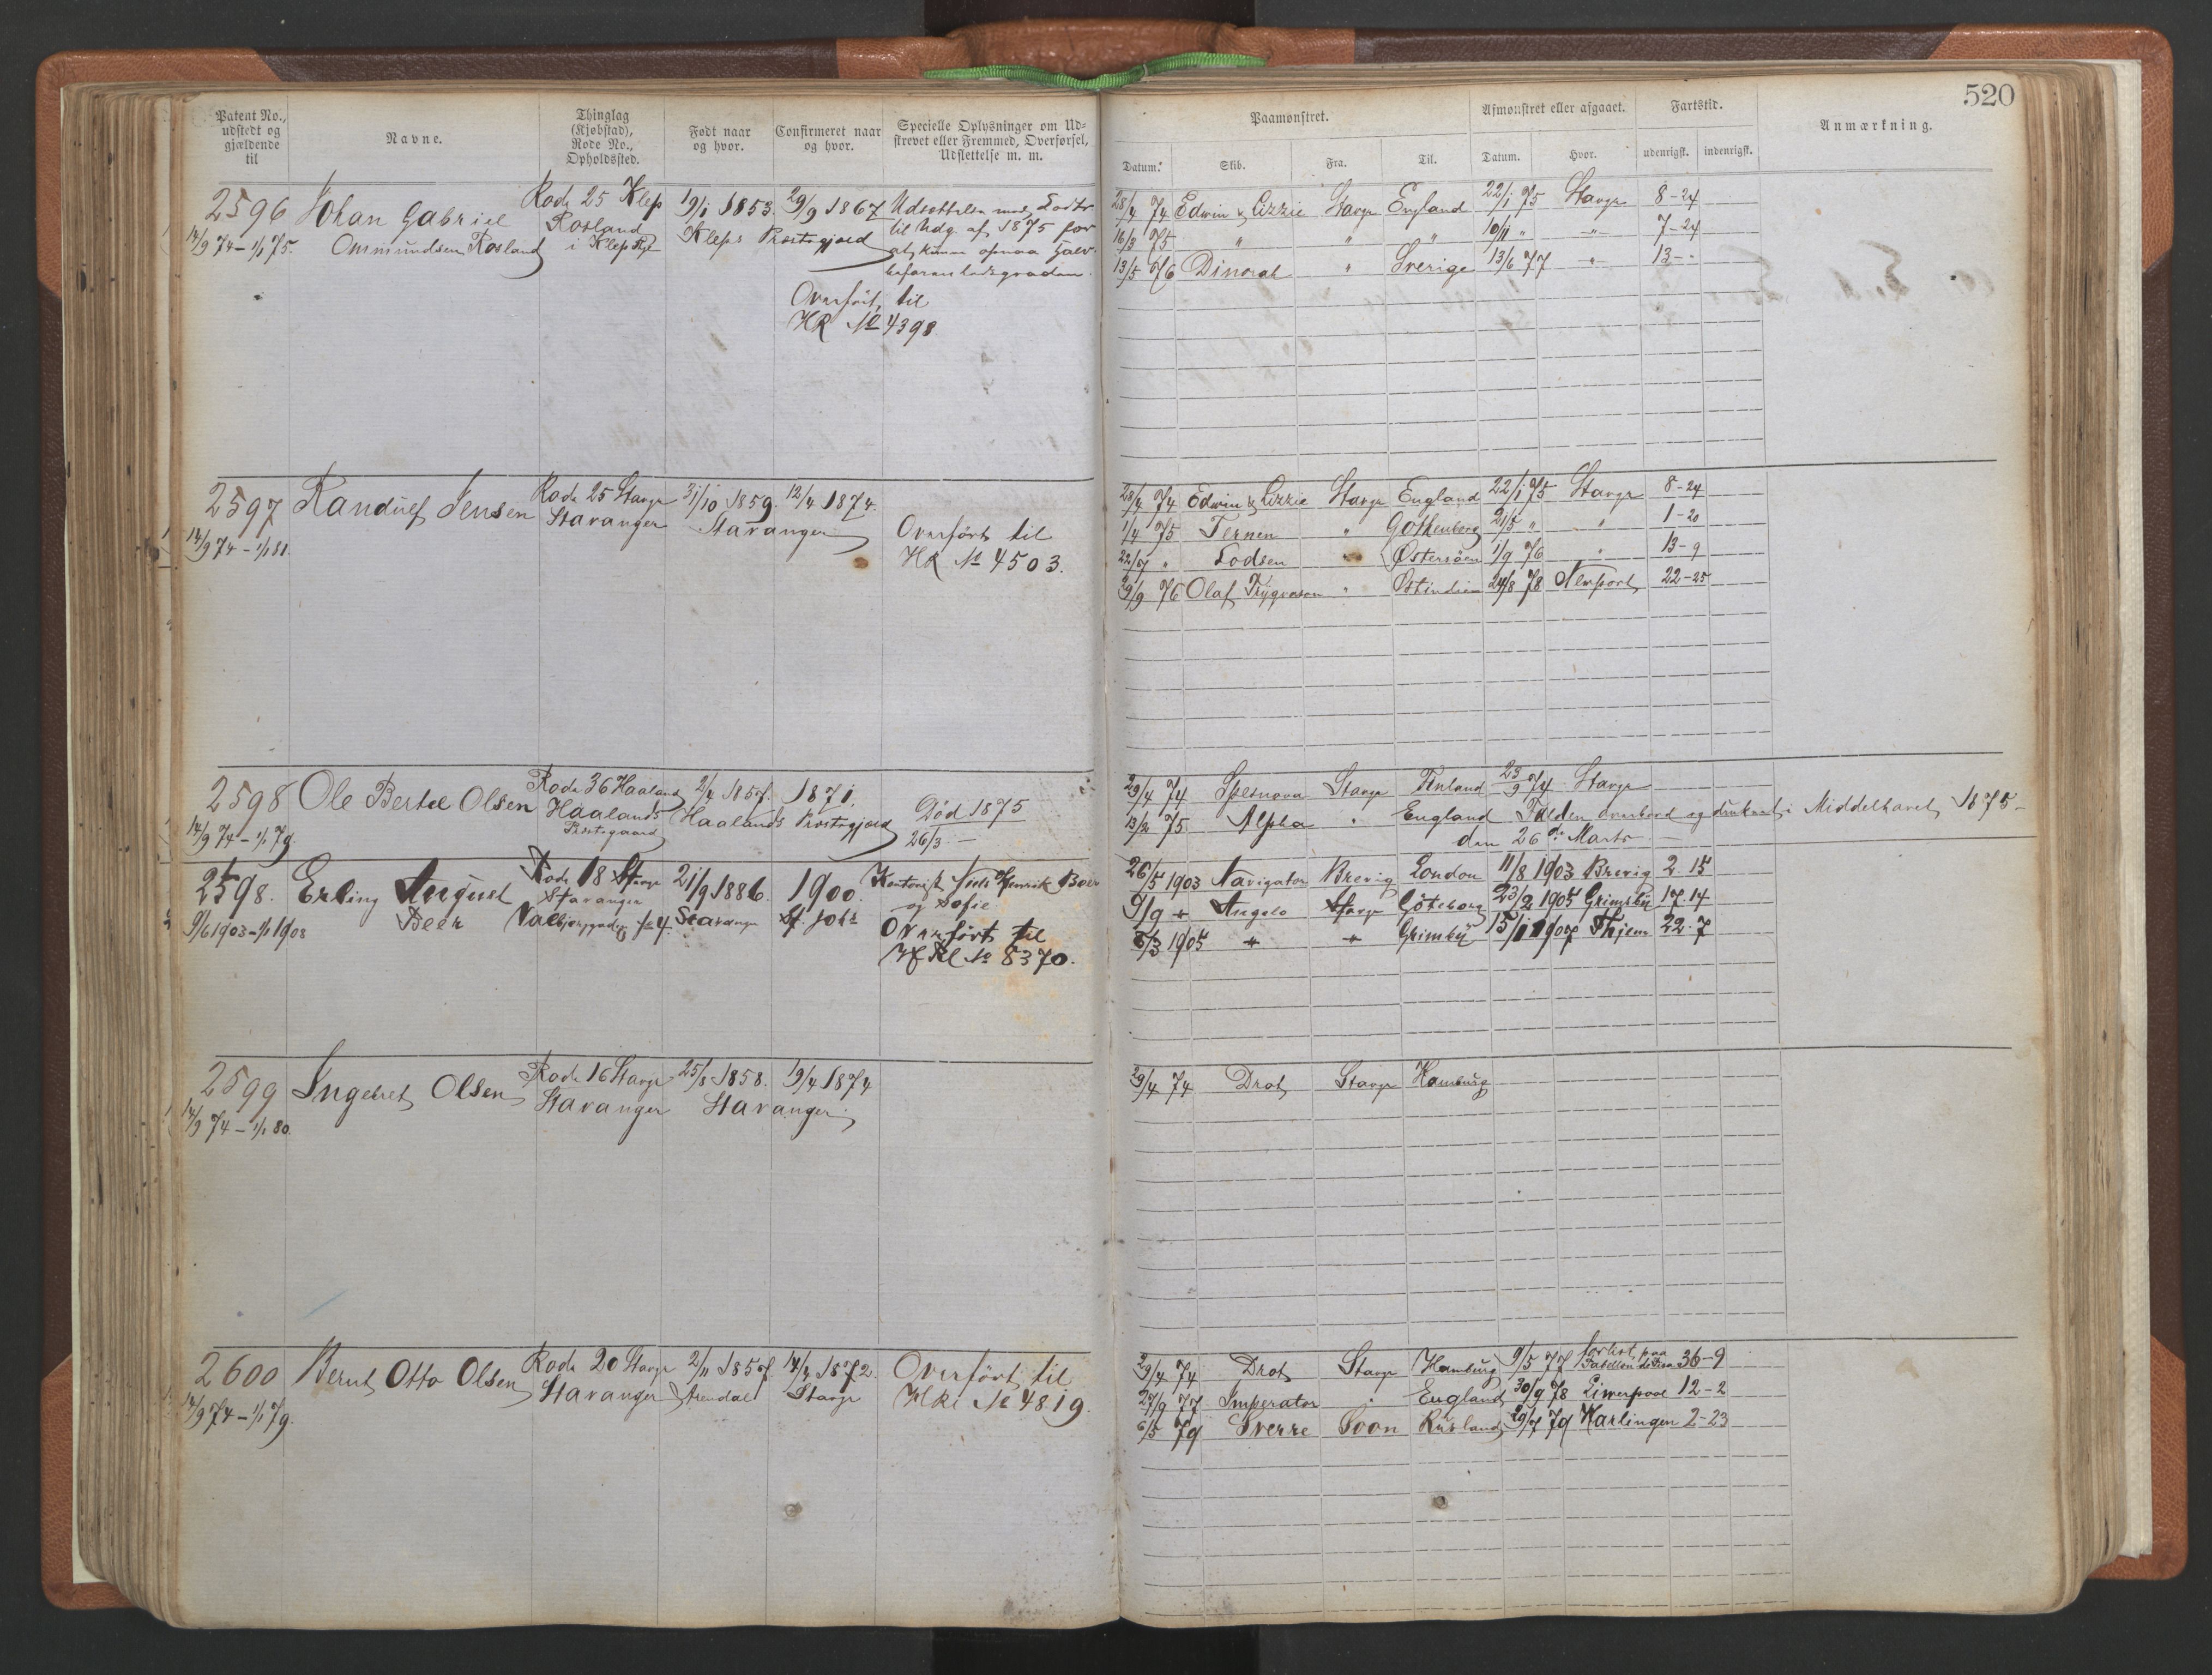 520
Patent No., udstedt og gjældende til
Navne.
Thinglag (Kjøbstad), Rode No., Opholdssted.
Født naar og hvor.
Confirmeret naar og hvor.
Specielle Oplysninger om Udskrevet eller Fremmed, Overførsel, Udslettelse m. m.
Paamønstret.
Afmønstret eller afgaaet.
Fartstid.
Anmærkning.
Datum. Skib. Fra. Til. Datum. Hvor. udenrigsk. indenrigsk.
2596 Johan Gabriel Rode 25 Klep 19/1 1853. 29/9 1867 Udsættelse med Lodtr
14/9 74 - 1/1 75. Ommundsen Rosland Rosland Kleps Prstgjæld til Udg. af 1875 for
i Klep Pgd at kunne opnaa
Overført til
HR No 4398.
28/4 74 Edwin & Lizzie Stavgr England 22/1 75 Stavgr 8-24
16/3 75 " " " 10/11 " " 7-24
13/5 76 Dinorah " Sverige 13/6 77 " 13-"
2597 Randulf Jensen Rode 25 Stavgr 31/10 1859. 12/4 1874.
14/9 74 - 1/1 81. Stavanger Stavanger
Overført til
HR No 4503.
28/4 74 Edwin & Lizzie Stavgr England 22/1 75 Stavgr 8-24
1/4 75 Ternen " Gothenberg 21/5 " " 1-20
22/7 " Lodsen " Østersøen 1/9 76 " 13-9
29/9 76 Olaf Trygvason " Ostindien 24/8 78 Newport 22-25
2598 Ole Bertel Olsen Rode 36 Haaland 2/4 1857. 1871.
14/9 74 - 1/1 79. Haalands Haalands Prstgjæld
Prstegaard
Død 1875
26/3 -
29/4 74 Spesnova Stavgr Finland 23/9 74 Stavgr
13/2 75 Alpha " England Falden overbord og druknet i Middelhavet 1875-
den 26de Marts
2598. Erling August Rode 18 Stavgr 21/9 1886. 1900. Kontorist Niels Henrik Beer
Stavanger og Sofie
9/6 1903 - 1/1 1908 Beer Valbjerggaden No 4. Stavanger St. Johs
Overført til
HRl No 8370.
26/5 1903 Navigator Brevig London 11/8 1903 Brevig 2.15
9/9 " Angelo Stavgr Göteborg 23/2 1905 Grimsby 17.14
6/3 1905 " " Grimsby 15/1 1907 Thjem 22.7
2599 Ingebret Olsen Rode 16 Stavgr 25/8 1858. 19/4 1874
14/9 74 - 1/1 80. Stavanger Stavanger
29/4 74 Drot Stavgr Hamburg
2600 Bernt Otto Olsen Rode 20 Stavgr 2/11 1857. 14/4 1872. Overført til
14/9 74 - 1/1 79. Stavanger Arendal Stavgr HRl No 4819.
29/4 74 Drot Stavgr Hamburg 9/5 77 forlist paa 36-9
27/9 77 Imperator " England 30/9 78 Liverpool 12-2
6/5 79 Sverre Soon Rusland 29/7 79 Harlingen 2-23